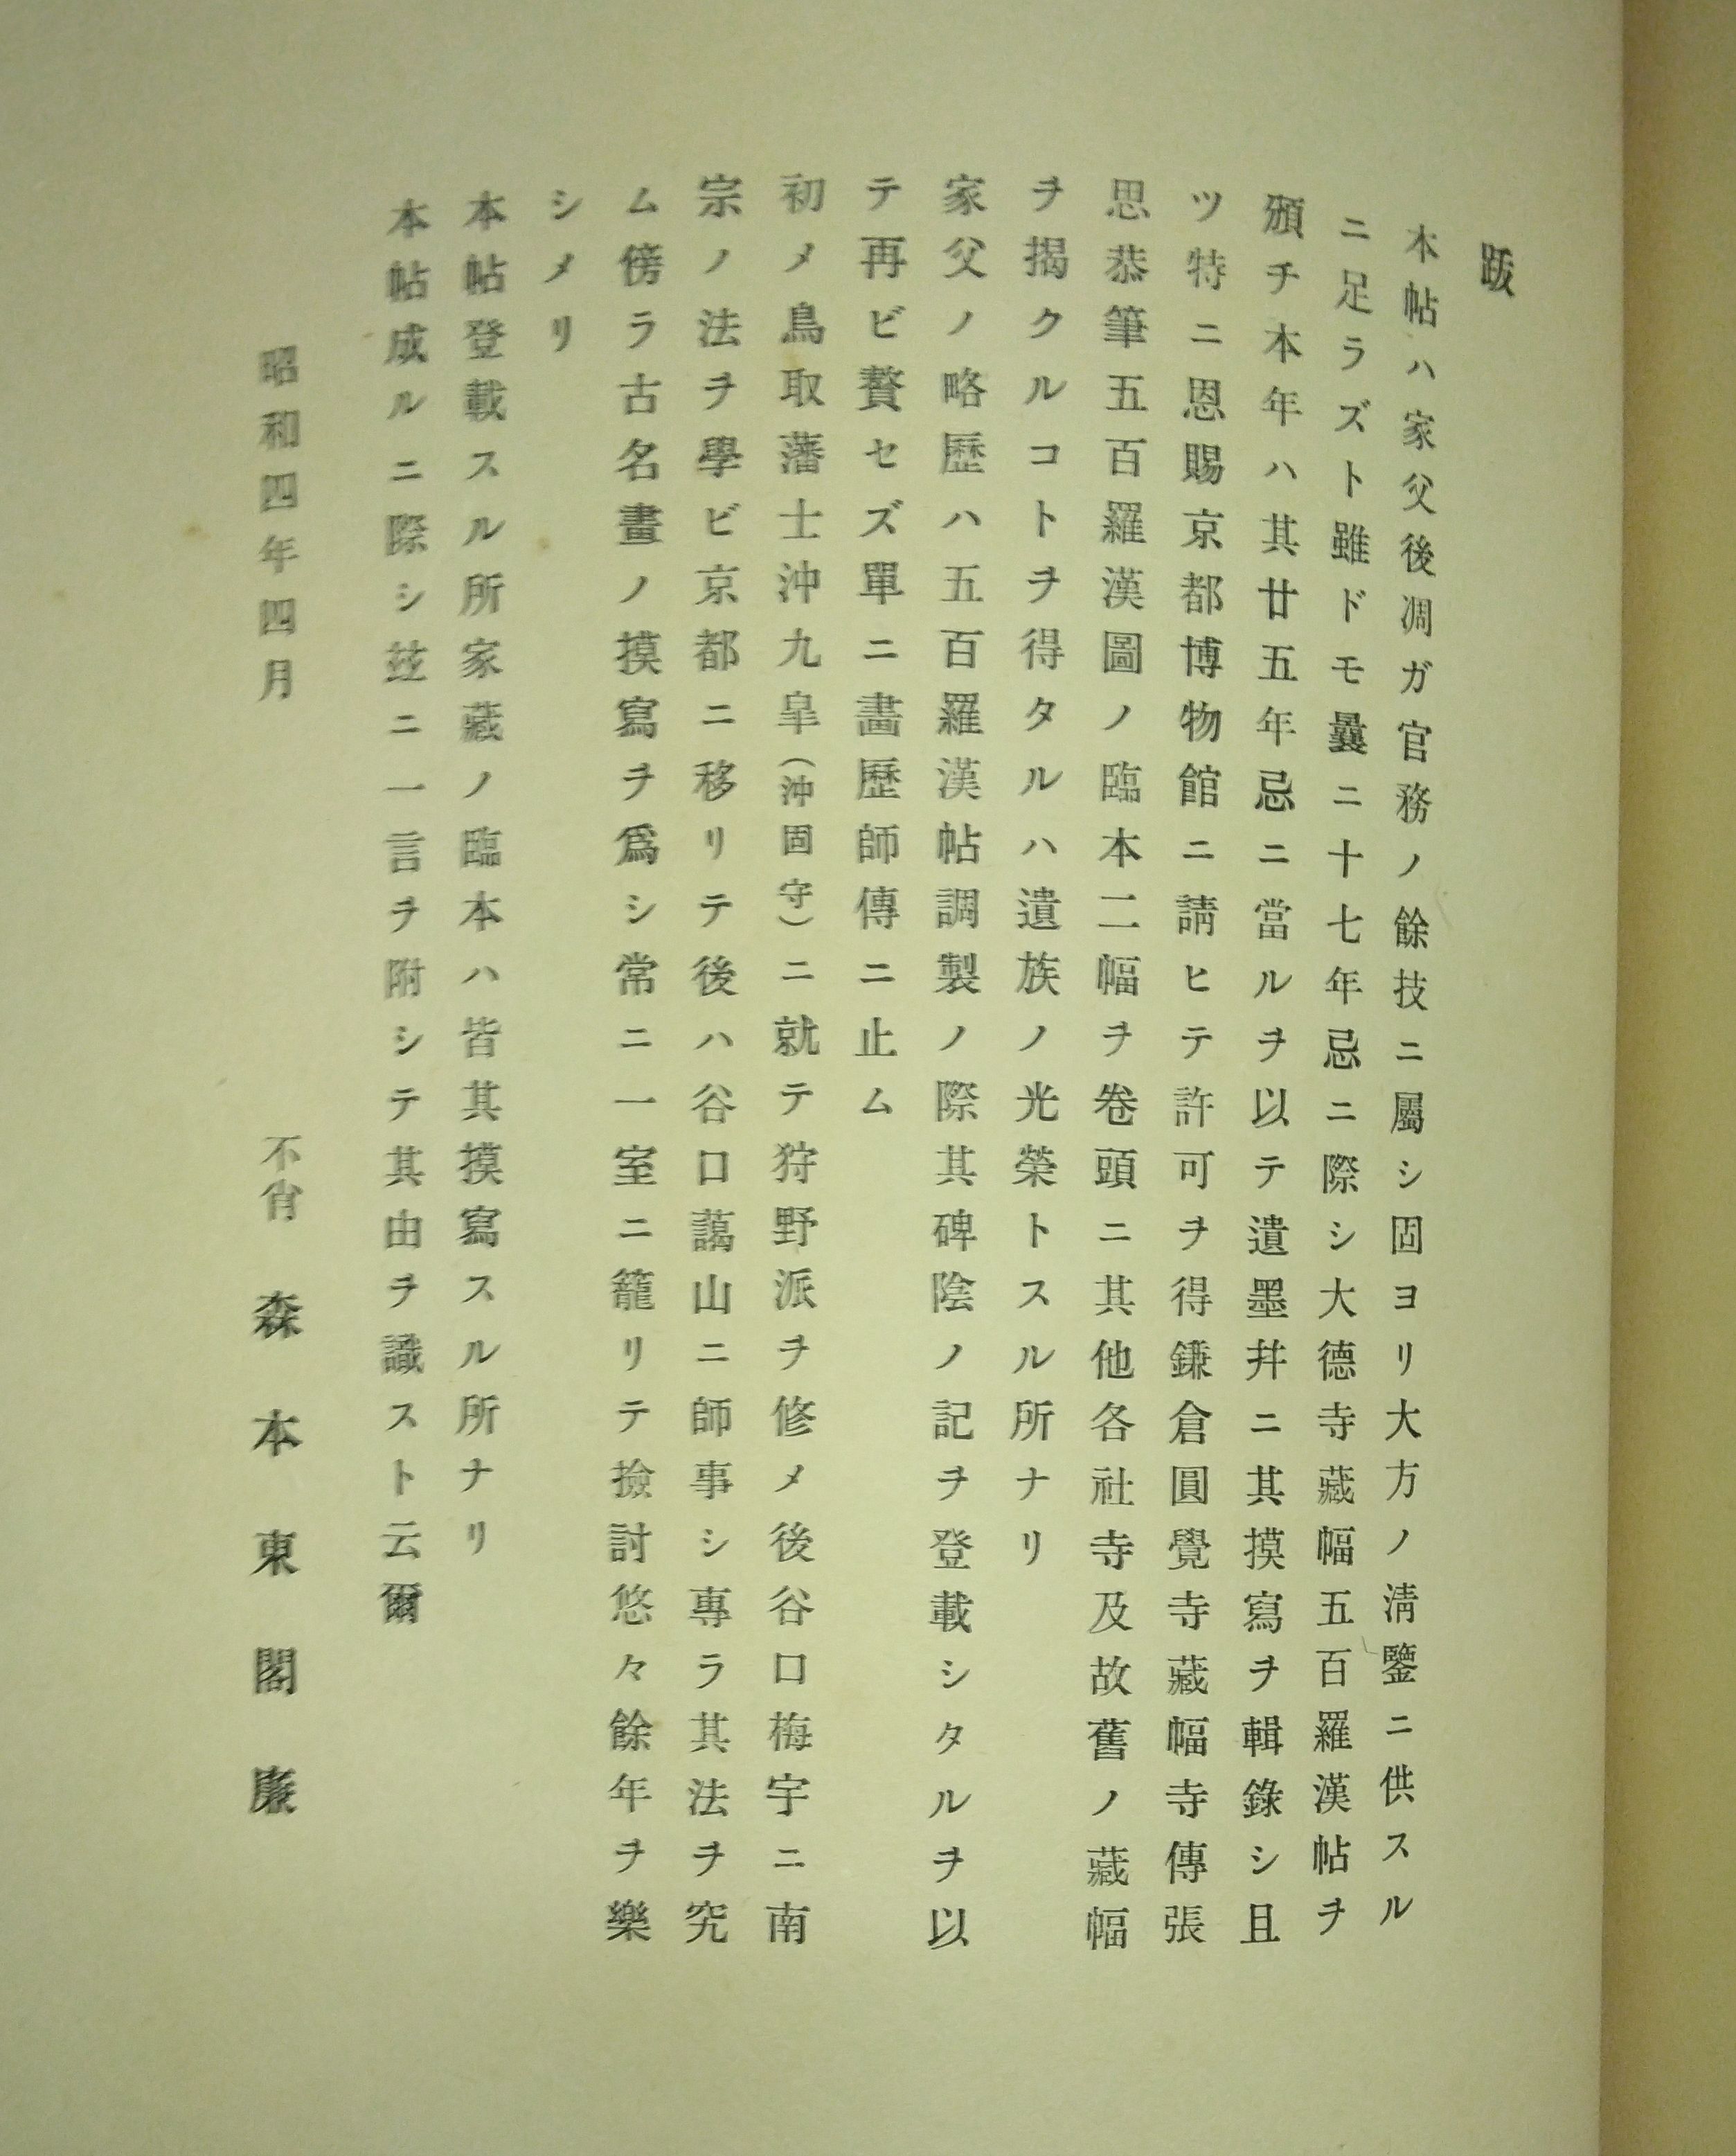 跋
本帖ハ家父後凋ガ官務ノ餘技ニ屬シ固ヨリ大方ノ淸鑒ニ供スル
ニ足ラズト雖ドモ曩ニ十七年忌ニ際シ大德寺藏幅五百羅漢帖ヲ
頒チ本年ハ其廿五年忌ニ當ルヲ以テ遺墨幷ニ其摸寫ヲ輯錄シ且
ツ特ニ恩賜京都博物館ニ請ヒテ許可ヲ得鎌倉圓覺寺藏幅寺傳張
思恭筆五百羅漢圖ノ臨本二幅ヲ卷頭ニ其他各社寺及故舊ノ藏幅
ヲ揭クルコトヲ得タルハ遺族ノ光榮トスル所ナリ
家父ノ略歷ハ五百羅漢帖調製ノ際其碑陰ノ記ヲ登載シタルヲ以
テ再ビ贅セズ單ニ畵歷師傳ニ止ム
初メ鳥取藩士沖九皐(沖固守)ニ就テ狩野派ヲ修メ後谷口梅宇ニ南
宗ノ法ヲ學ビ京都ニ移リテ後ハ谷口藹山ニ師事シ專ラ其法ヲ究
ム傍ラ古名畫ノ摸寫ヲ爲シ常ニ一室ニ籠リテ撿討悠々餘年ヲ樂
シメリ
本帖登載スル所家藏ノ臨本ハ皆其摸寫スル所ナリ
本帖成ルニ際シ玆ニ一言ヲ附シテ其由ヲ識スト云爾
昭和四年四月
不肖 森本東閣廉